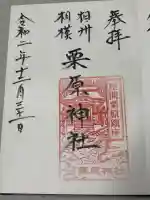 奉拝
相州
相模
栗原神社
令和二年十二月三十一日